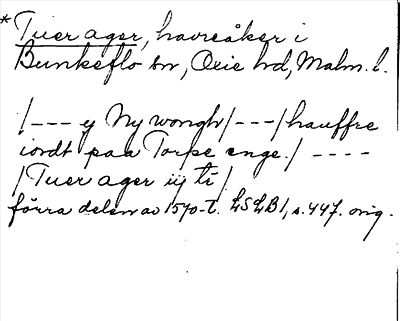 * Tuer ager, havreåker i
Bunkeflo sn, Oxie hd, Malm. l.
/--- y Ny wongh/---/hauffre
iordt paa Torpe enge./ ----
/Tuer ager iij ti/
förra delen av 1570-t. LSLB1, s. 447. orig.